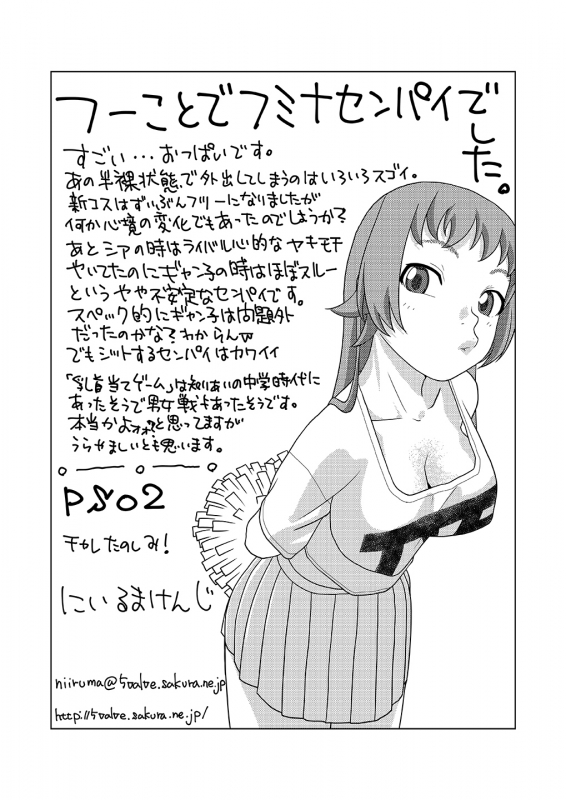 フーことでフミナセンパイでした。
すごい…おっぱいです。
あの半裸状態で外出してしまうのはいろいろスゴイ。
新コスはずいぶんフツーになりましたが
何か心境の変化でもあったのでしょうか?
あとシアの時はライバル心的なヤキモチ
やいてたのにギャン子の時はほぼスルー
というやや不安定なセンパイです。
スペック的にギャン子は問題外
だったのかな?わからんw
でもジットするセンパイはカワイイ
「乳首当てゲーム」は知りあいの中学時代に
あったそうで男女戦もあったそうです。
本当かよォォ?と思ってますが
うらやましいとも思います。
PSO2
干かしたのしみ!
にいるまけんじ
niiruma@5valve.sakura.ne.jp
http://5valve.sakura.ne.jp/